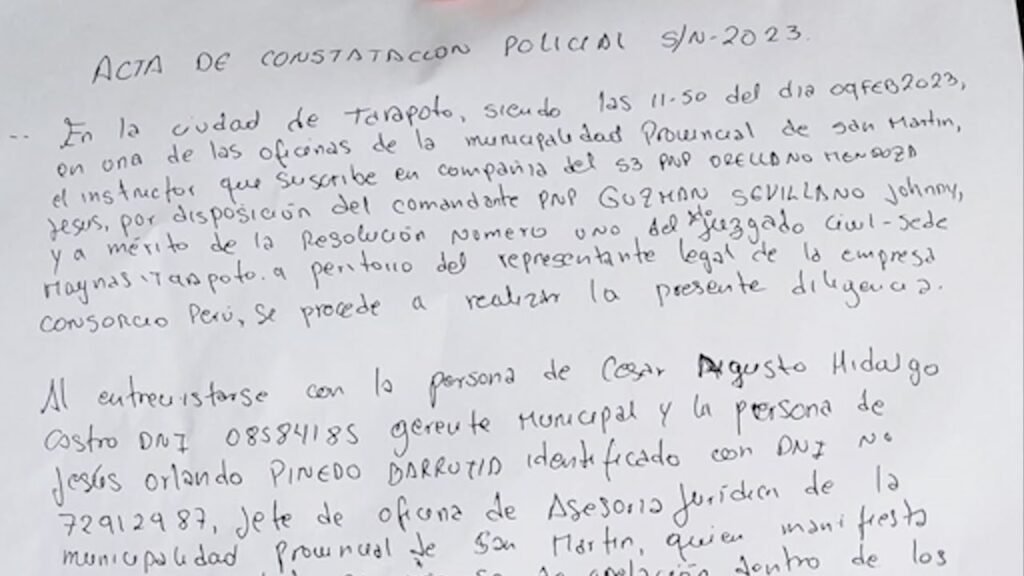 ACTA DE CONSTATACCION POLICIAL S/N-2023.
-- En la ciudad de Tarapoto, siendo las 11-50 del dia 09FEB2023,
en una de las oficinas de la municipalidad Provincial de San Martin,
el instructor que suscribe en compañia del S3 PNP ORELLANO MENDOZA
Jesus, por disposición del comandante PNP GUZMAN SEVILLANO Johnny,
y a mérito de la Resolución Numero uno del Juzgado Civil-Sede
Maynas-Tarapoto. a peritorio del representante legal de la empresa
CONSORCIO Perú, se procede a realizar la presente diligencia.
Al entrevistarse con la persona de Cesar Augusto Hidalgo
Castro DNI 08584185 gerente Municipal y la persona de
Jesús Orlando PINEDO BARRUTIA identificado con DNI Nº
72912987, Jefe de oficina de Asesoria Jurídica de la
municipalidad Provincial de San Martin, quien manifiesta
apelación dentro de los